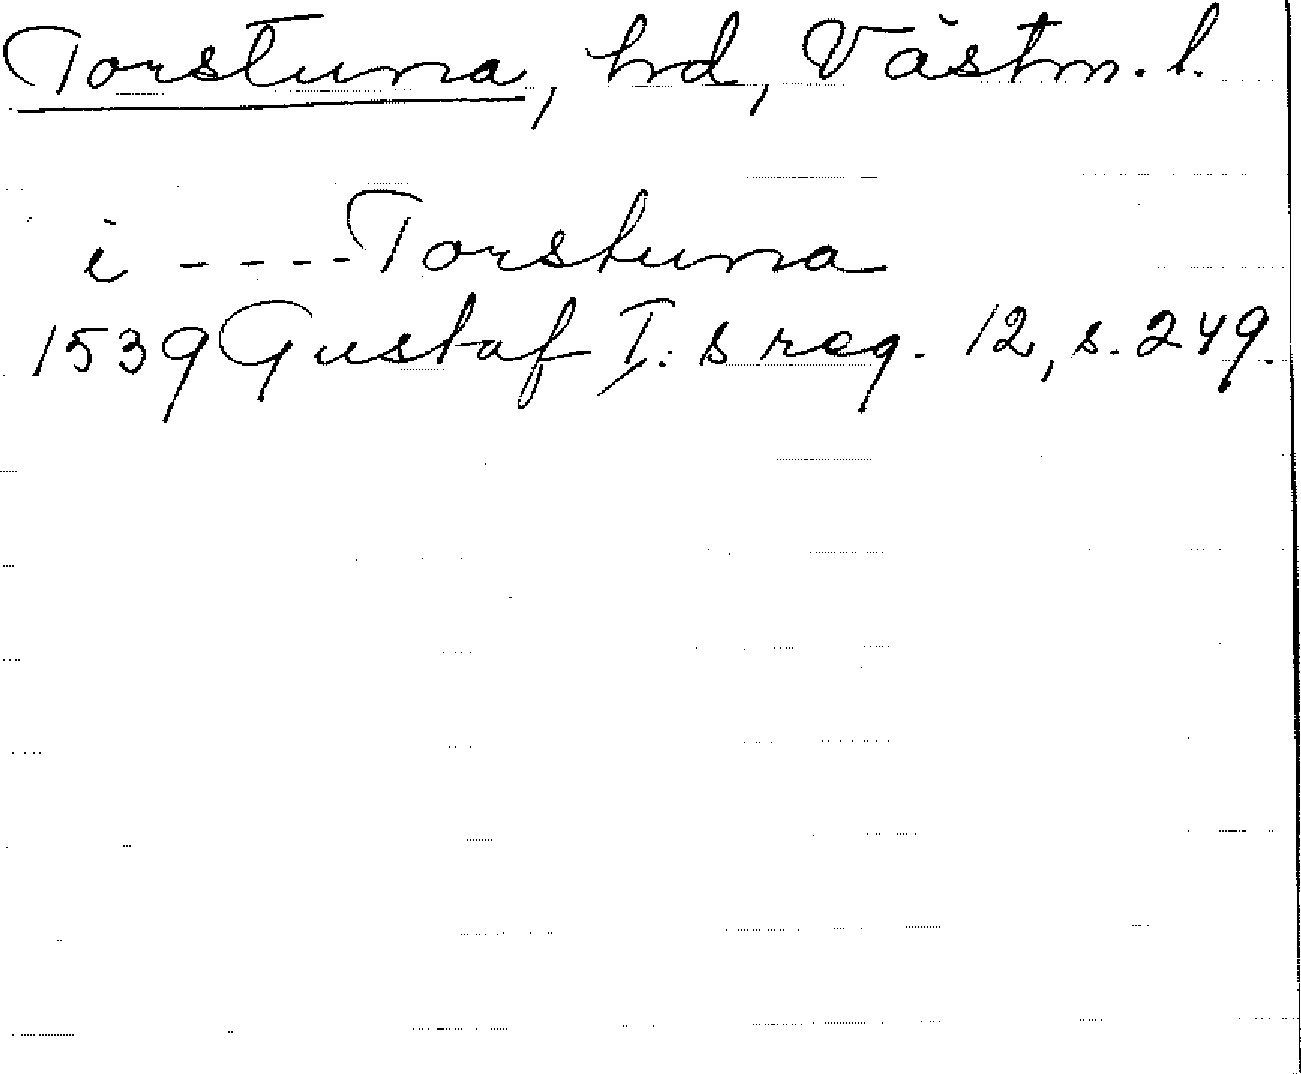 Torstuna, hd, Västm. l.
i ---- Torstuna
1539 Gustaf I:s reg. 12, s. 249.